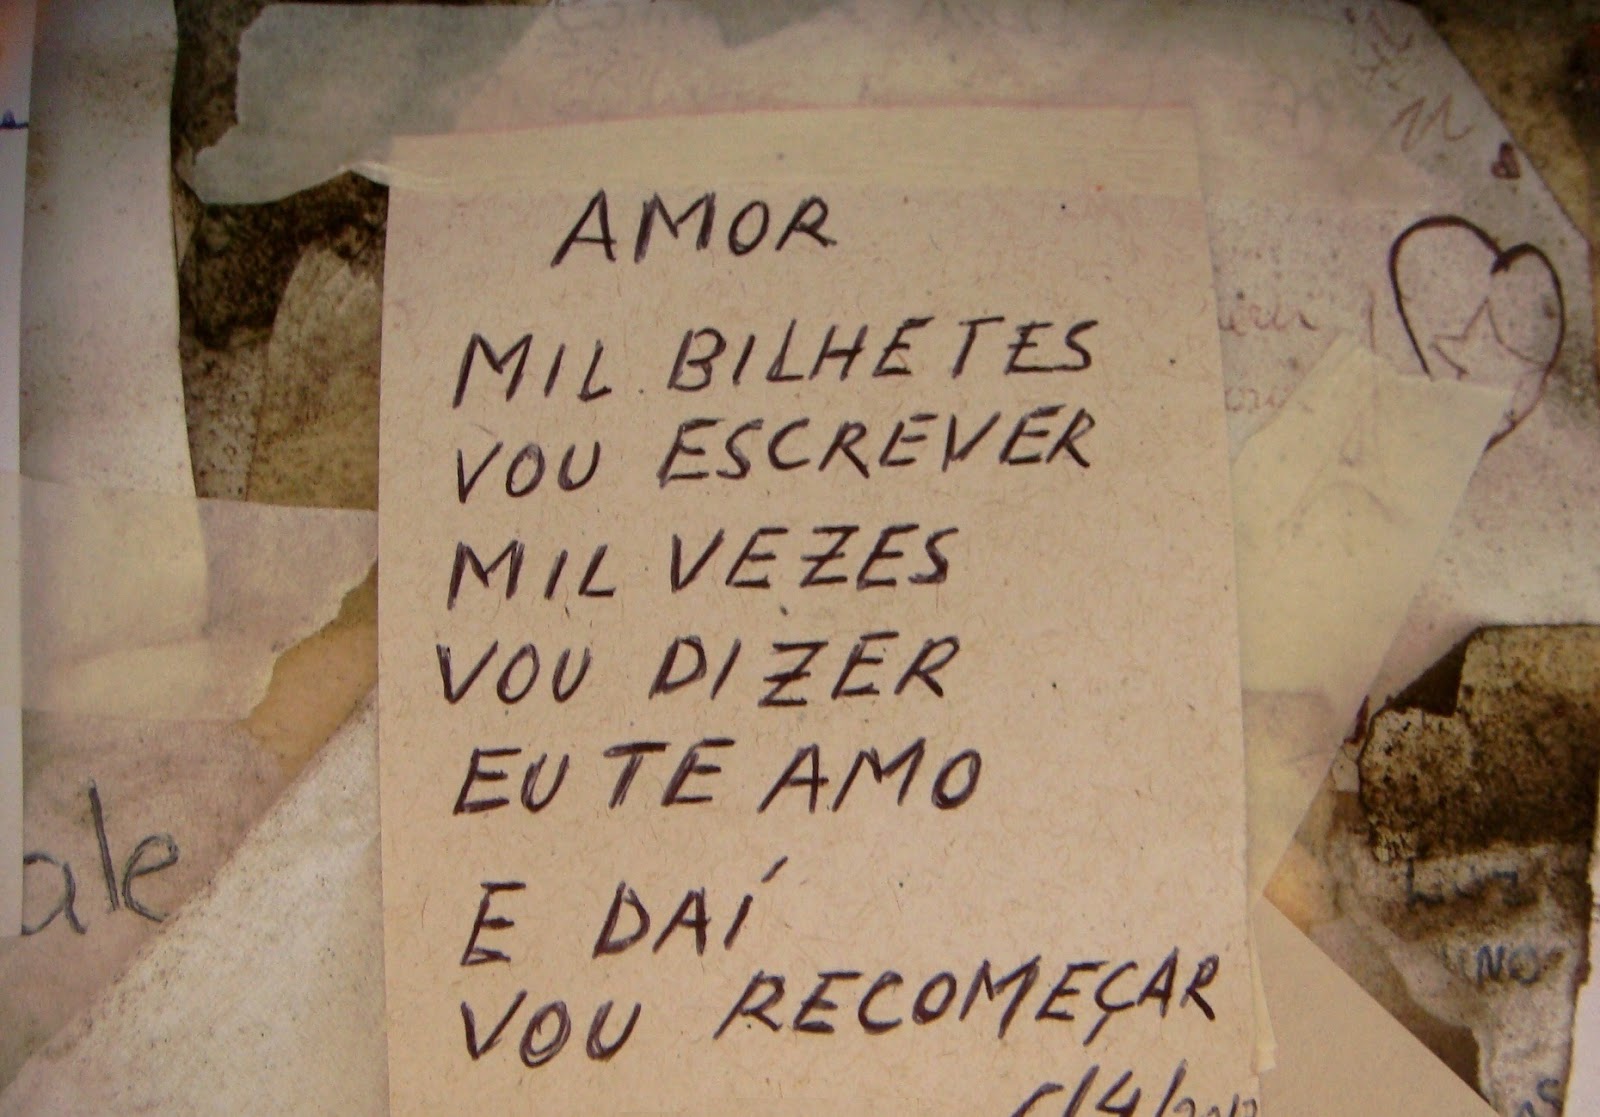 AMOR
MIL BILHETES
VOU ESCREVER
MIL VEZES
VOU DIZER
EU TE AMO
E DAÍ
VOU RECOMEÇAR
ale